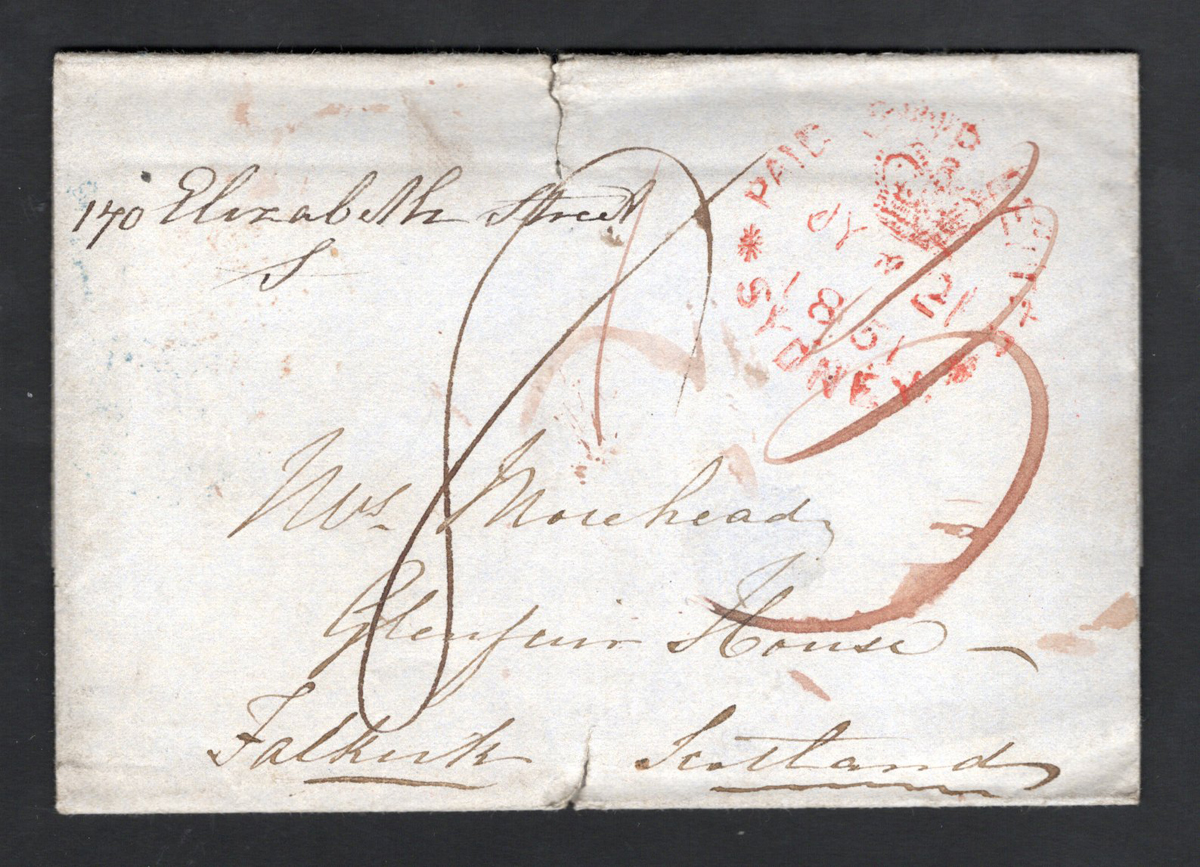 170 Elizabeth Street
S
PAID SHIP LETTER
SYDNEY
1851
Mrs. Morehead
Glenfuir House
Falkirk Scotland